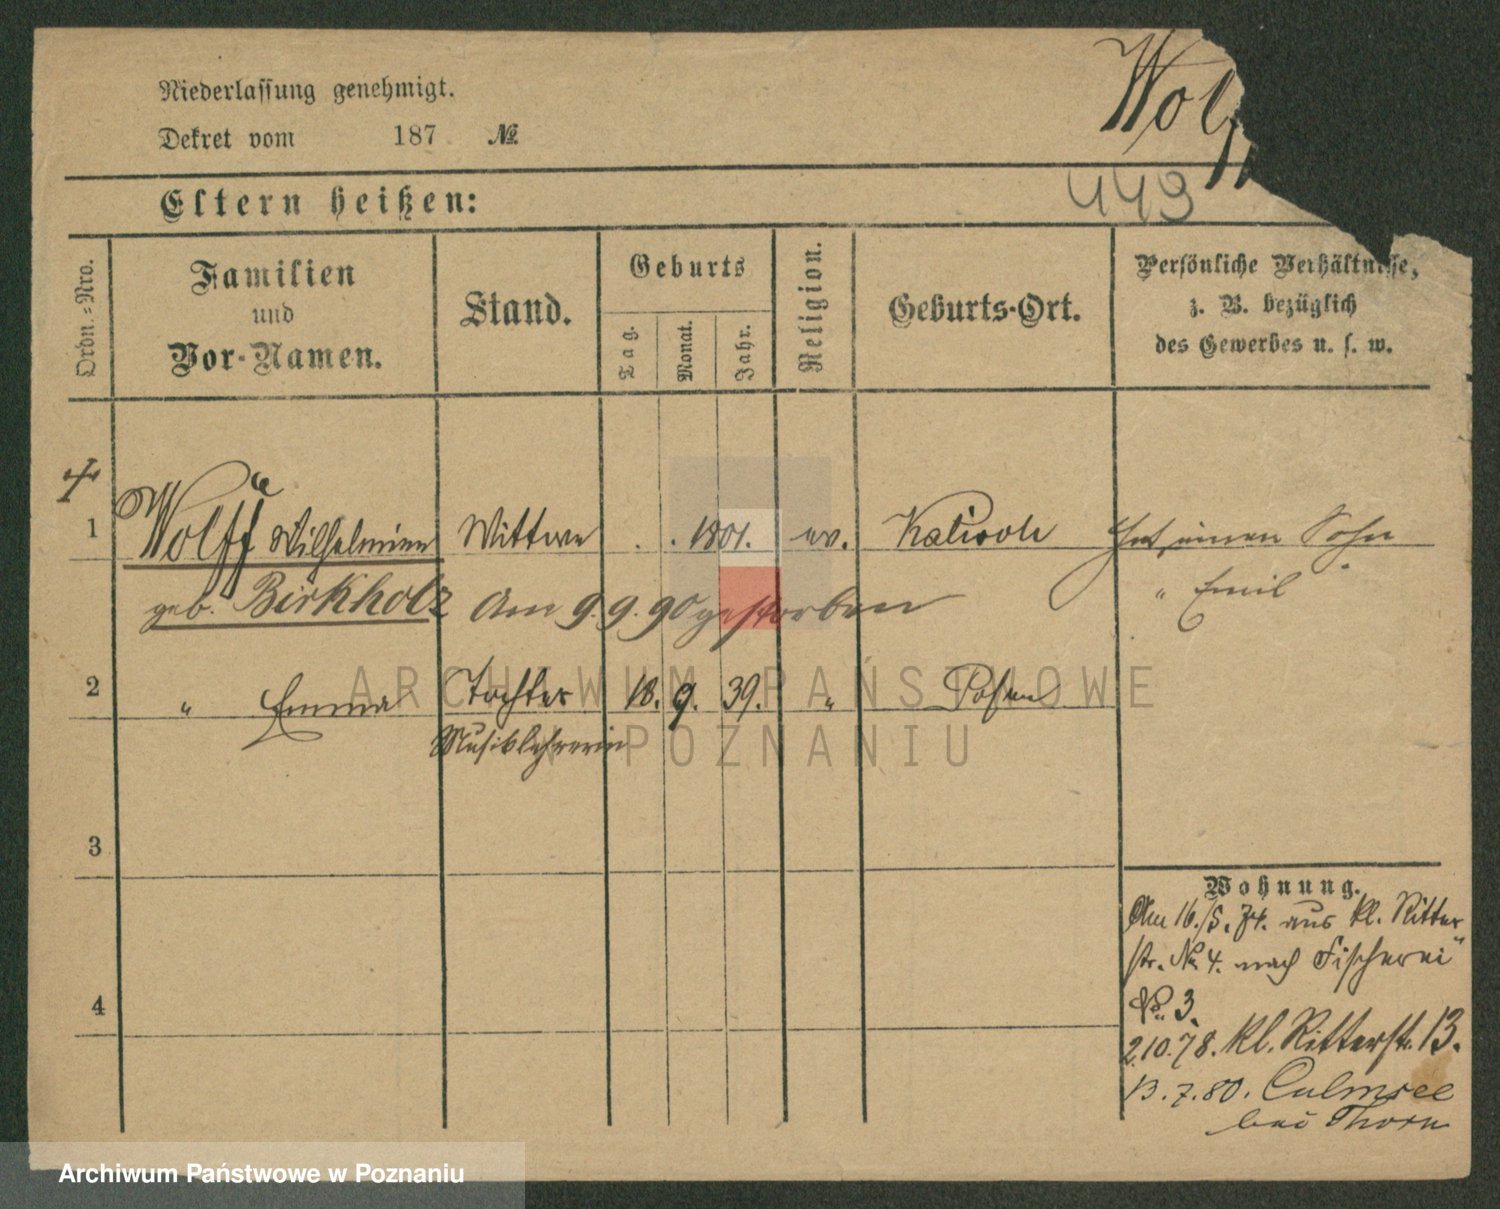 Niederlassung genehmigt.
Dekret vom 187 №
Wolf
Eltern heißen:
449
Ordn.-Nro.
Familien
und
Vor-Namen.
Stand.
Geburts
Tag.
Monat.
Jahr.
Religion.
Geburts-Ort.
Persönliche Verhältnisse,
z. B. bezüglich
des Gewerbes u. s. w.
1 Wolff Wilhelmine Wittwe . . 1801. ev. Kalisch Hat einen Sohn
geb. Birkholz Am 9.9.90 gestorben " Emil
2 " Emma Tochter 18. 9. 39. " Posen
Musiklehrerin
3
4
Wohnung.
Am 16./5. 74. aus kl. Ritter
str. No 4. nach Fischerei
No. 3.
2.10.78. kl. Ritterstr. 13.
13.7.80. Culmsee
bei Thorn
ARCHIWUM PAŃSTWOWE
W POZNANIU
Archiwum Państwowe w Poznaniu